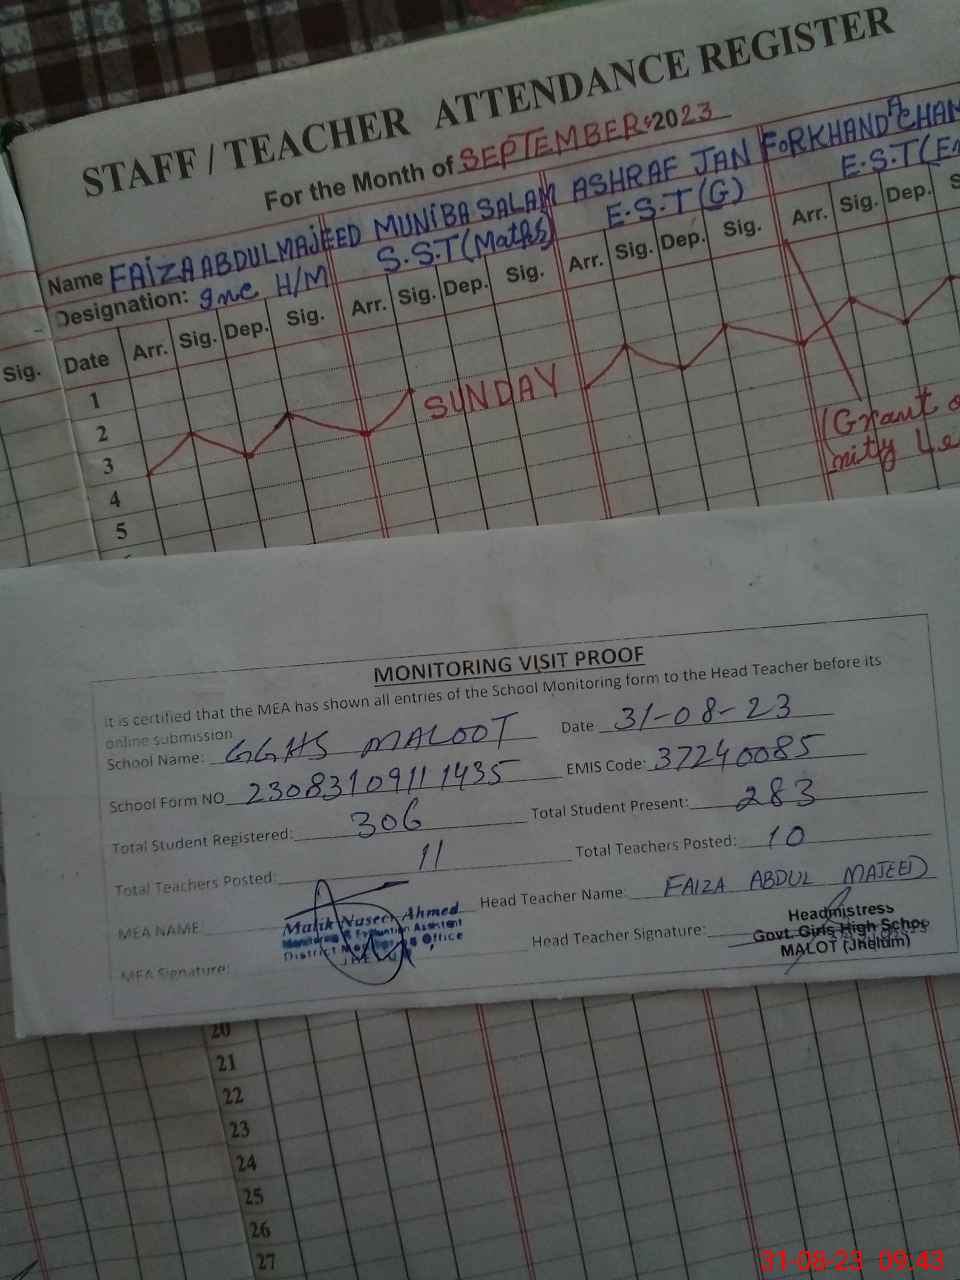 STAFF / TEACHER ATTENDANCE REGISTER
For the Month of SEPTEMBER 2023
Name FAIZA ABDUL MAJEED MUNIBA SALAM ASHRAF JAN FORKHANDA
Designation: Inc H/M S.S.T (Maths) E.S.T (G) E.S.T
Sig. Date Arr. Sig. Dep. Sig. Arr. Sig. Dep. Sig. Arr. Sig. Dep. Sig. Arr. Sig. Dep.
1
2
3 SUNDAY
4
5
(Grant
MONITORING VISIT PROOF
It is certified that the MEA has shown all entries of the School Monitoring form to the Head Teacher before its
online submission.
School Name: GGHS MALOOT Date 31-08-23
School Form NO 23083109111435 EMIS Code: 37240085
Total Student Registered: 306 Total Student Present: 283
Total Teachers Posted: 11 Total Teachers Posted: 10
MEA NAME: Malik Naseer Ahmed Head Teacher Name: FAIZA ABDUL MAJEED
Monitoring & Evaluation Assistant
District Monitoring Office
MEA Signature: Head Teacher Signature: Headmistress
Govt. Girls High School
MALOT (Jhelum)
20
21
22
23
24
25
26
27
31-08-23 09:43